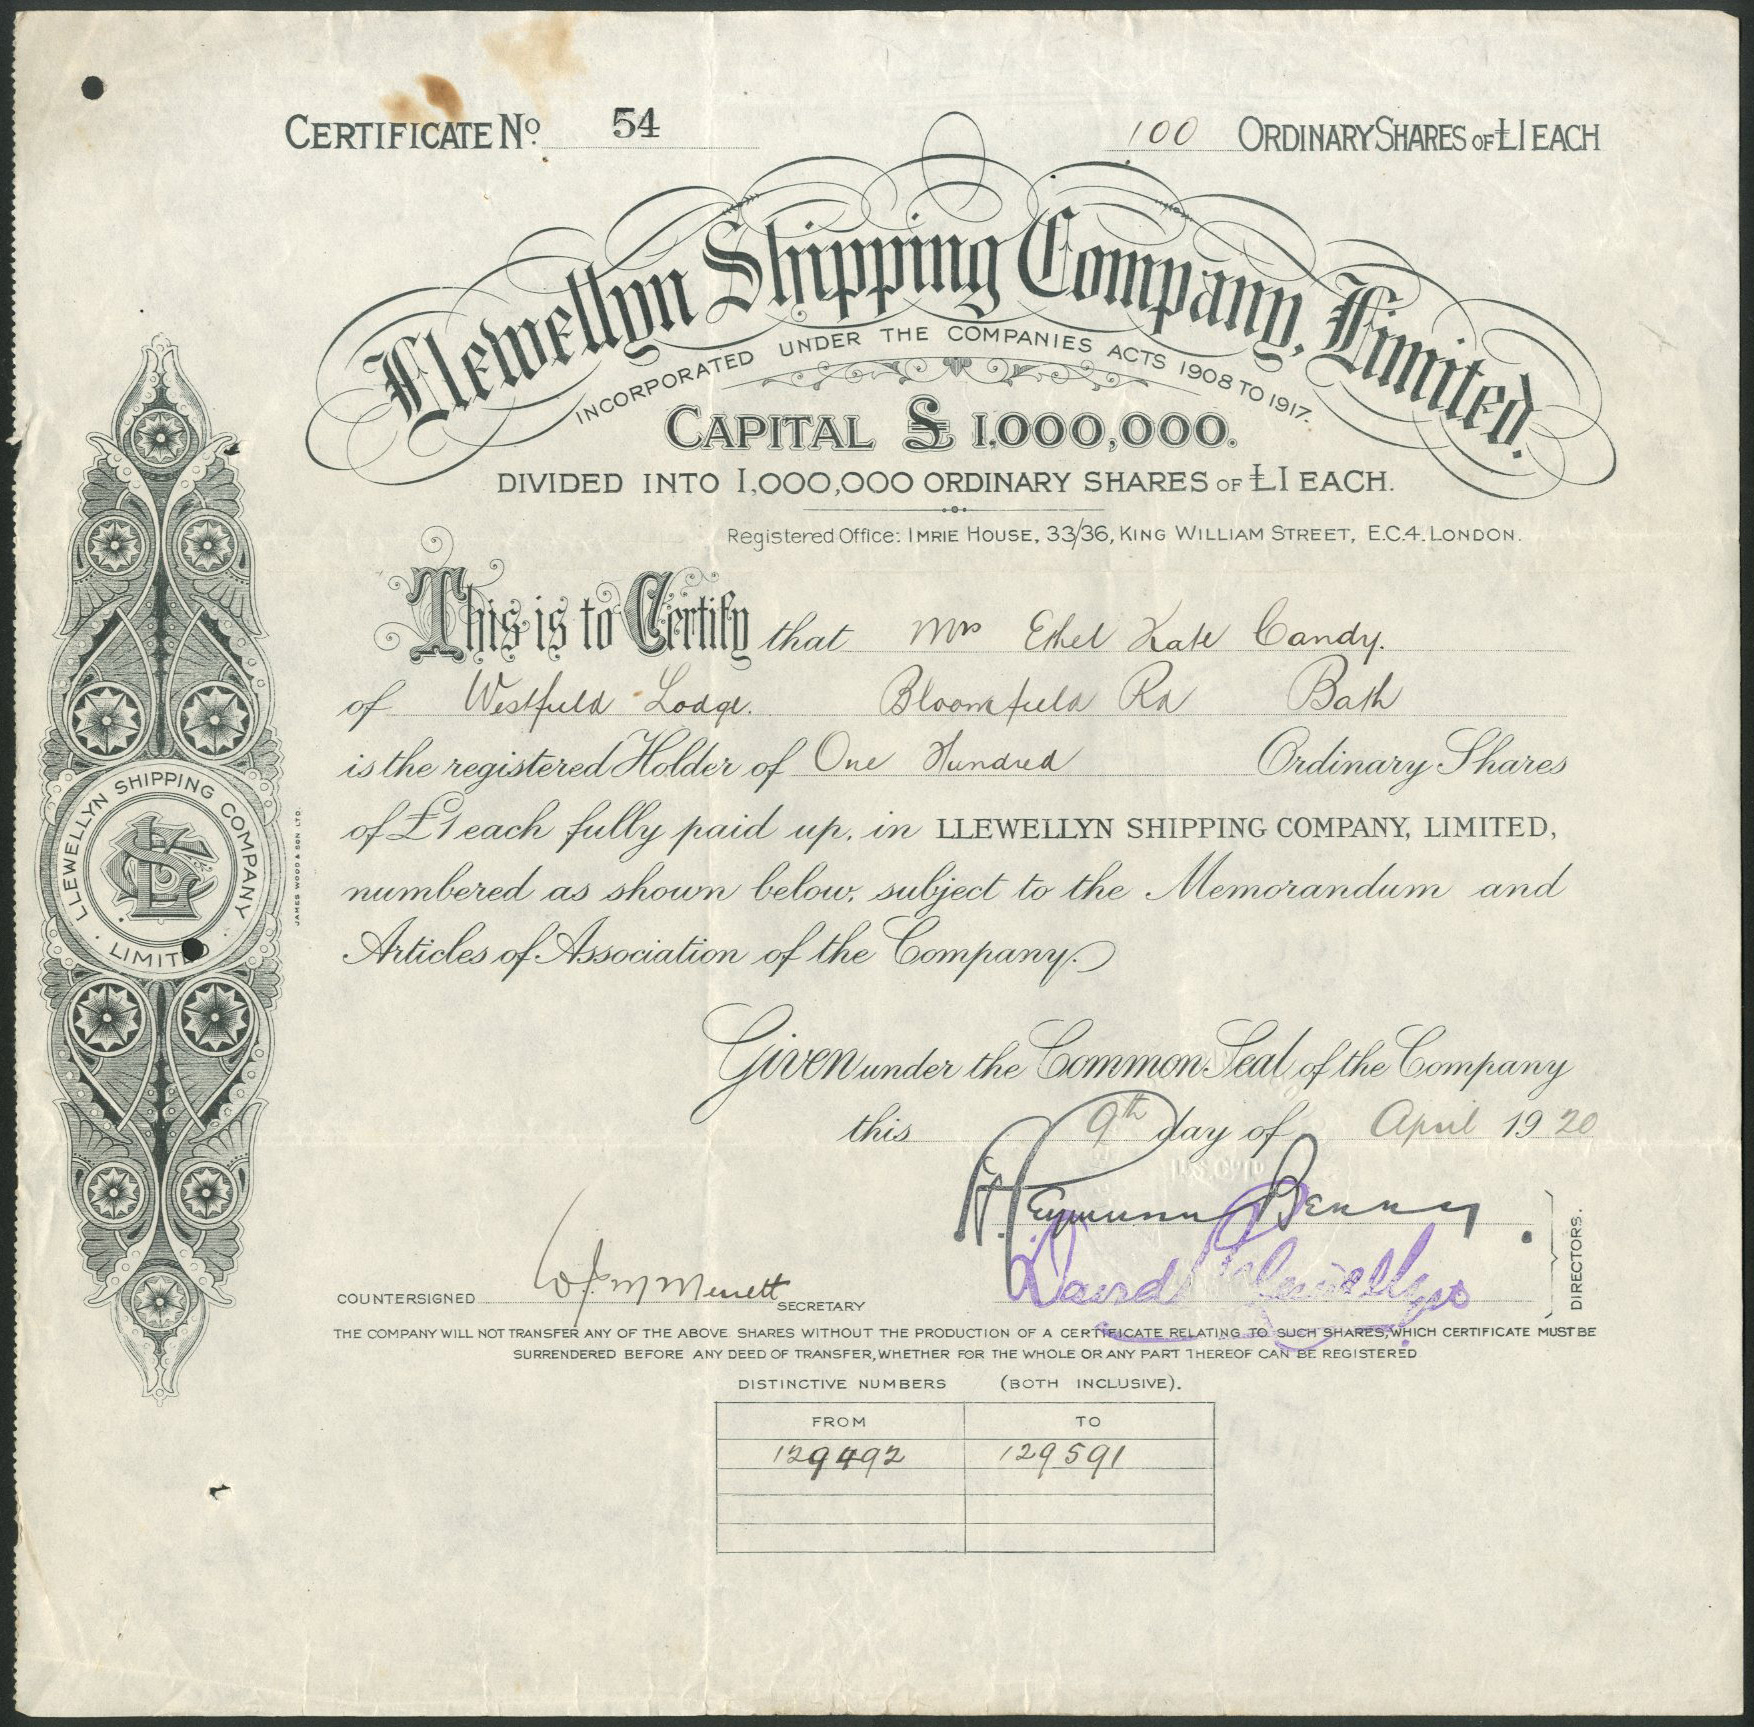 CERTIFICATE No. 54
100 ORDINARY SHARES OF £1 EACH
Llewellyn Shipping Company, Limited.
INCORPORATED UNDER THE COMPANIES ACTS 1908 TO 1917.
CAPITAL £ 1,000,000.
DIVIDED INTO 1,000,000 ORDINARY SHARES OF £1 EACH.
Registered Office: IMRIE HOUSE, 33/36, KING WILLIAM STREET, E.C.4. LONDON.
This is to Certify that Mrs Ethel Kate Candy.
of Westfield Lodge. Bloomfield Rd Bath
is the registered Holder of One Hundred Ordinary Shares
of £1 each fully paid up, in LLEWELLYN SHIPPING COMPANY, LIMITED,
numbered as shown below, subject to the Memorandum and
Articles of Association of the Company.
LLEWELLYN SHIPPING COMPANY
· LIMITED ·
JAMES WOOD & SON LTD.
Given under the Common Seal of the Company
this 9th day of April 1920
H. Seymour Benney
David Llewellyn
DIRECTORS.
COUNTERSIGNED SECRETARY
THE COMPANY WILL NOT TRANSFER ANY OF THE ABOVE SHARES WITHOUT THE PRODUCTION OF A CERTIFICATE RELATING TO SUCH SHARES, WHICH CERTIFICATE MUST BE
SURRENDERED BEFORE ANY DEED OF TRANSFER, WHETHER FOR THE WHOLE OR ANY PART THEREOF CAN BE REGISTERED
DISTINCTIVE NUMBERS (BOTH INCLUSIVE).
FROM TO
129492 129591